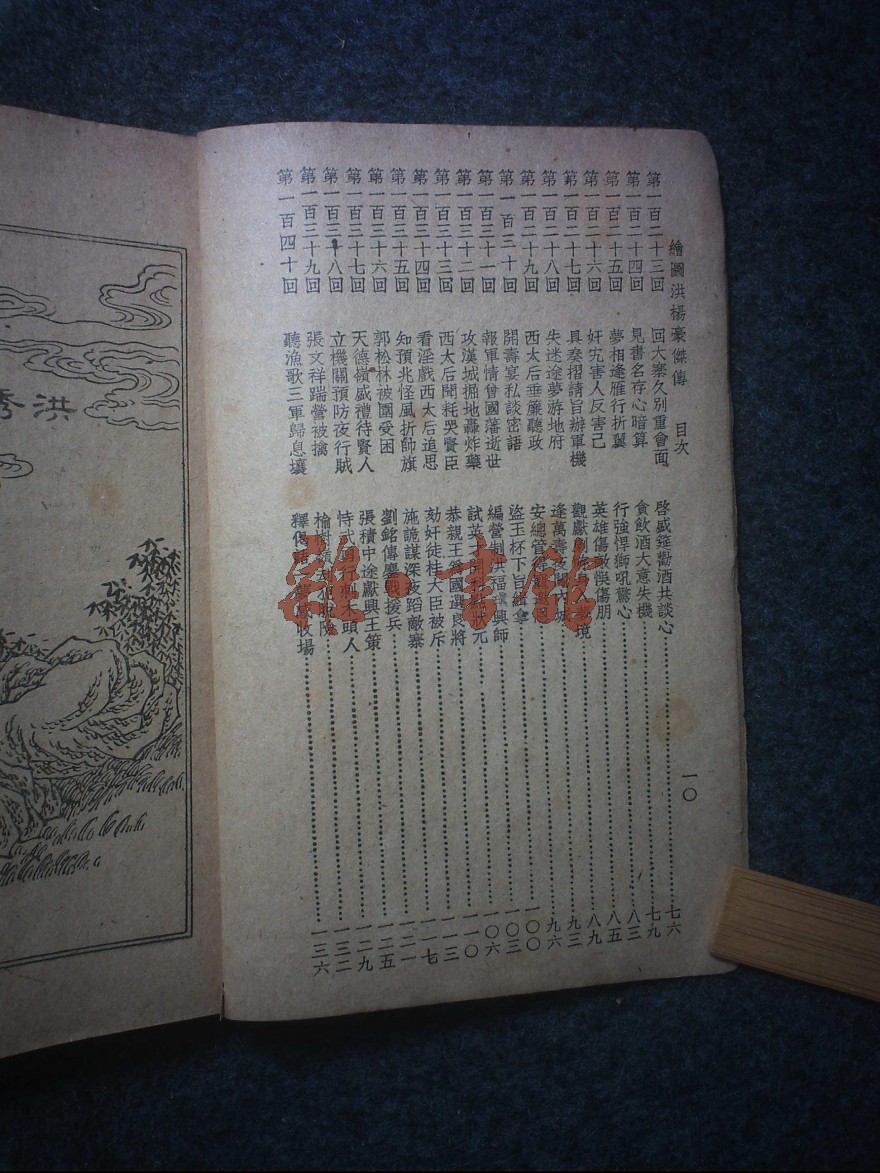 繪圖洪楊豪傑傳 目次 一〇
第一百二十三回 回大寨久別重會面 啓盛筵勸酒共談心 七六
第一百二十四回 見書名存心暗算 貪飲酒大意失機 七九
第一百二十五回 夢相逢雁行折翼 行強悍獅吼驚心 八三
第一百二十六回 奸宄害人反害己 英雄傷敵悞傷朋 八五
第一百二十七回 具奏摺請旨辦軍機 觀獻 境 八九
第一百二十八回 失迷途夢游地府 逢萬壽 城 九三
第一百二十九回 西太后垂簾聽政 安總管得 九六
第一百三十回 開壽宴私談密語 盜玉杯下旨緝拿 一〇〇
第一百三十一回 報軍情曾國藩逝世 編營制洪福 興師 一〇三
第一百三十二回 攻漢城掘地轟炸藥 試英 開科 狀元 一〇六
第一百三十三回 西太后聞耗哭賢臣 恭親王 國選良將 一一〇
第一百三十四回 看淫戲西太后追思 劾奸徒桂大臣被斥 一一三
第一百三十五回 知預兆怪風折帥旗 施詭謀深夜蹈敵寨 一一七
第一百三十六回 郭松林被圍受困 劉銘傳鏖戰援兵 一二一
第一百三十七回 天德嶺盛禮待賢人 張積中途獻興王策 一二五
第一百三十八回 立機關預防夜行賊 恃武 行刺 頭人 一二九
第一百三十九回 張文祥踹營被擒 險 一三二
第一百四十回 聽漁歌三軍歸息壤 釋 收場 一三六
洪秀